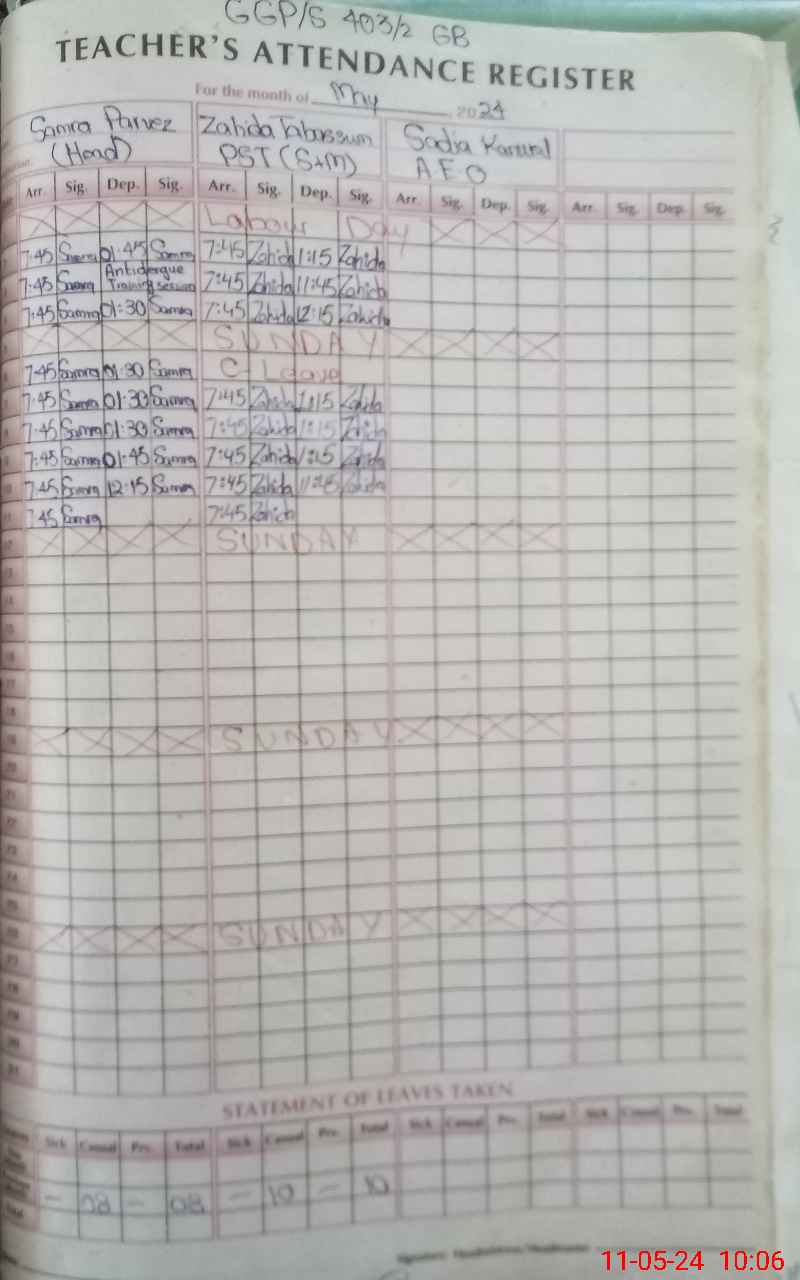 GGP/S 403/2 GB
TEACHER'S ATTENDANCE REGISTER
For the month of May 2024
Samra Parvez Zahida Tabassum Sadia
(Head) PST (S+M) A E O
Arr. Sig. Dep. Sig. Arr. Sig. Dep. Sig. Arr. Sig. Dep. Sig. Arr. Sig. Dep. Sig.
Labour Day
2 7:45 Samra 01:45 Samra 7:45 Zahida 1:15 Zahida
3 7:45 Samra Antidengue Training session 7:45 Zahida 11:45 Zahida
4 7:45 Samra 01:30 Samra 7:45 Zahida 12:15 Zahida
5 SUNDAY
6 7:45 Samra 01:30 Samra C Leave
7 7:45 Samra 01:30 Samra 7:45 Zahida 1:15 Zahida
8 7:45 Samra 01:30 Samra 7:45 Zahida 1:15 Zahida
9 7:45 Samra 01:45 Samra 7:45 Zahida 1:15 Zahida
10 7:45 Samra 12:15 Samra 7:45 Zahida 11:45 Zahida
11 7:45 Samra 7:45 Zahida
12 SUNDAY
13
14
15
16
17
18
19 SUNDAY
20
21
22
23
24
25
26 SUNDAY
27
28
29
30
31
STATEMENT OF LEAVES TAKEN
Sick Casual Prv. Total Sick Casual Prv. Total Sick Casual Prv. Total Sick Casual Prv. Total
- 08 - 08 - 10 - 10
Total
11-05-24 10:06